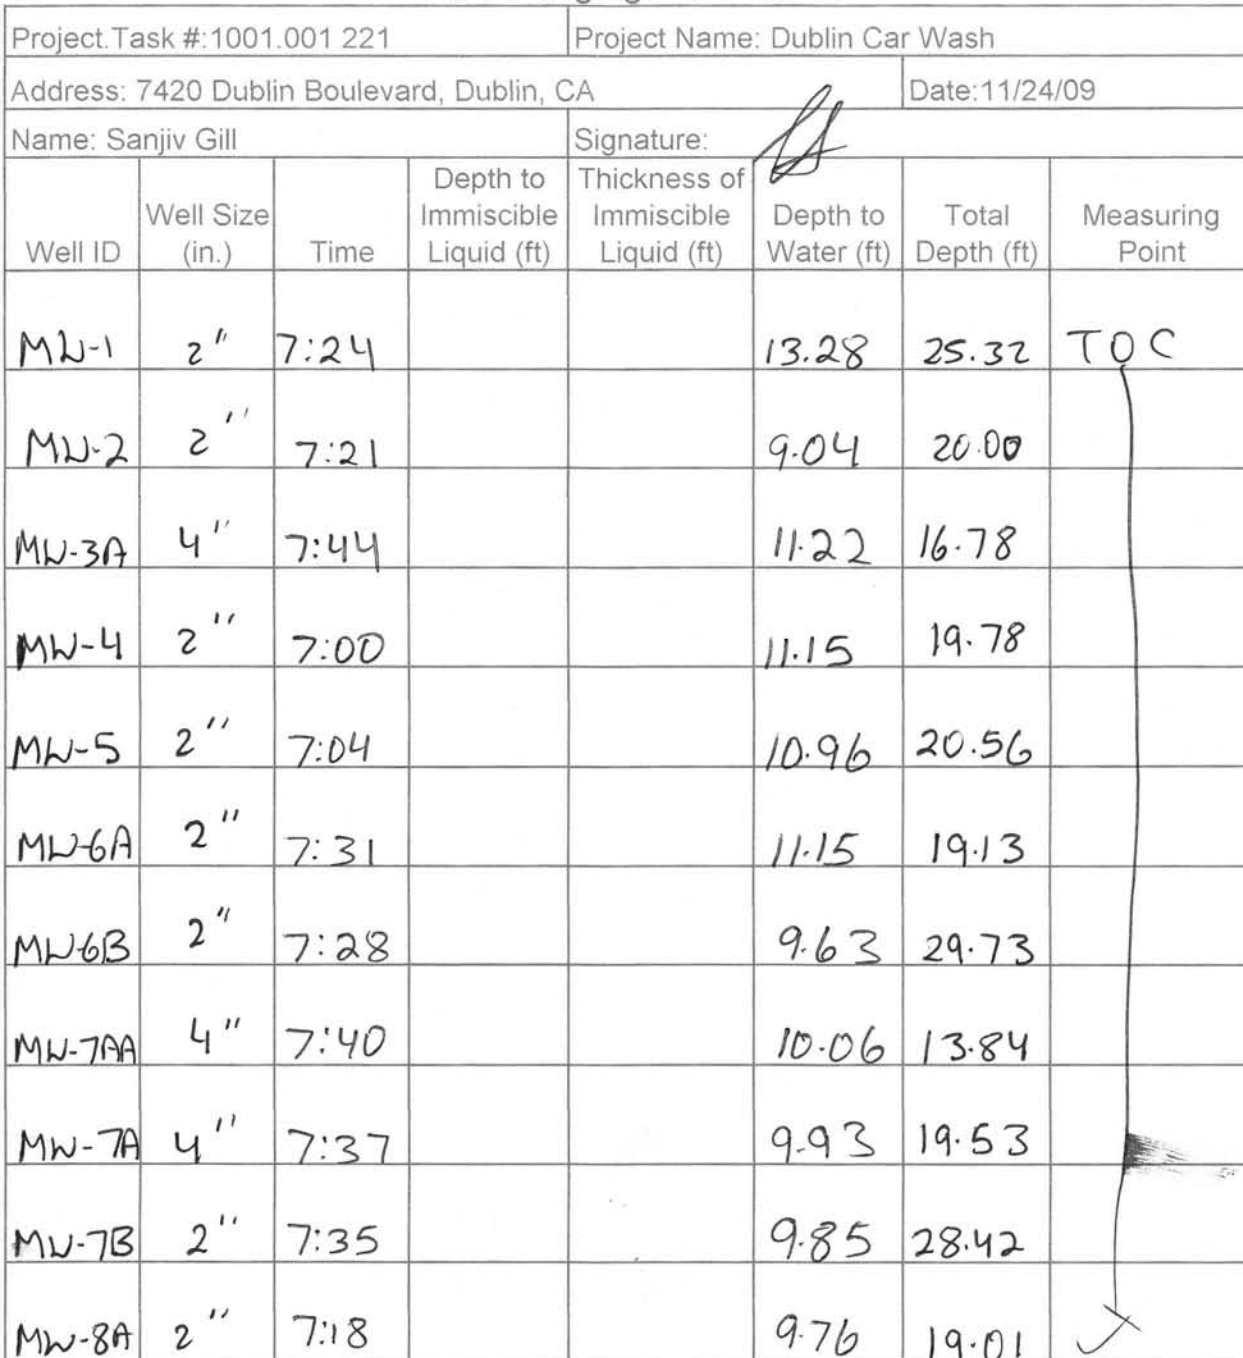 Project.Task #:1001.001 221 Project Name: Dublin Car Wash
Address: 7420 Dublin Boulevard, Dublin, CA Date:11/24/09
Name: Sanjiv Gill Signature:
Well ID Well Size (in.) Time Depth to Immiscible Liquid (ft) Thickness of Immiscible Liquid (ft) Depth to Water (ft) Total Depth (ft) Measuring Point
MW-1 2" 7:24 13.28 25.32 TOC
MW-2 2" 7:21 9.04 20.00
MW-3A 4" 7:44 11.22 16.78
MW-4 2" 7:00 11.15 19.78
MW-5 2" 7:04 10.96 20.56
MW-6A 2" 7:31 11.15 19.13
MW-6B 2" 7:28 9.63 29.73
MW-7AA 4" 7:40 10.06 13.84
MW-7A 4" 7:37 9.93 19.53
MW-7B 2" 7:35 9.85 28.42
MW-8A 2" 7:18 9.76 19.01